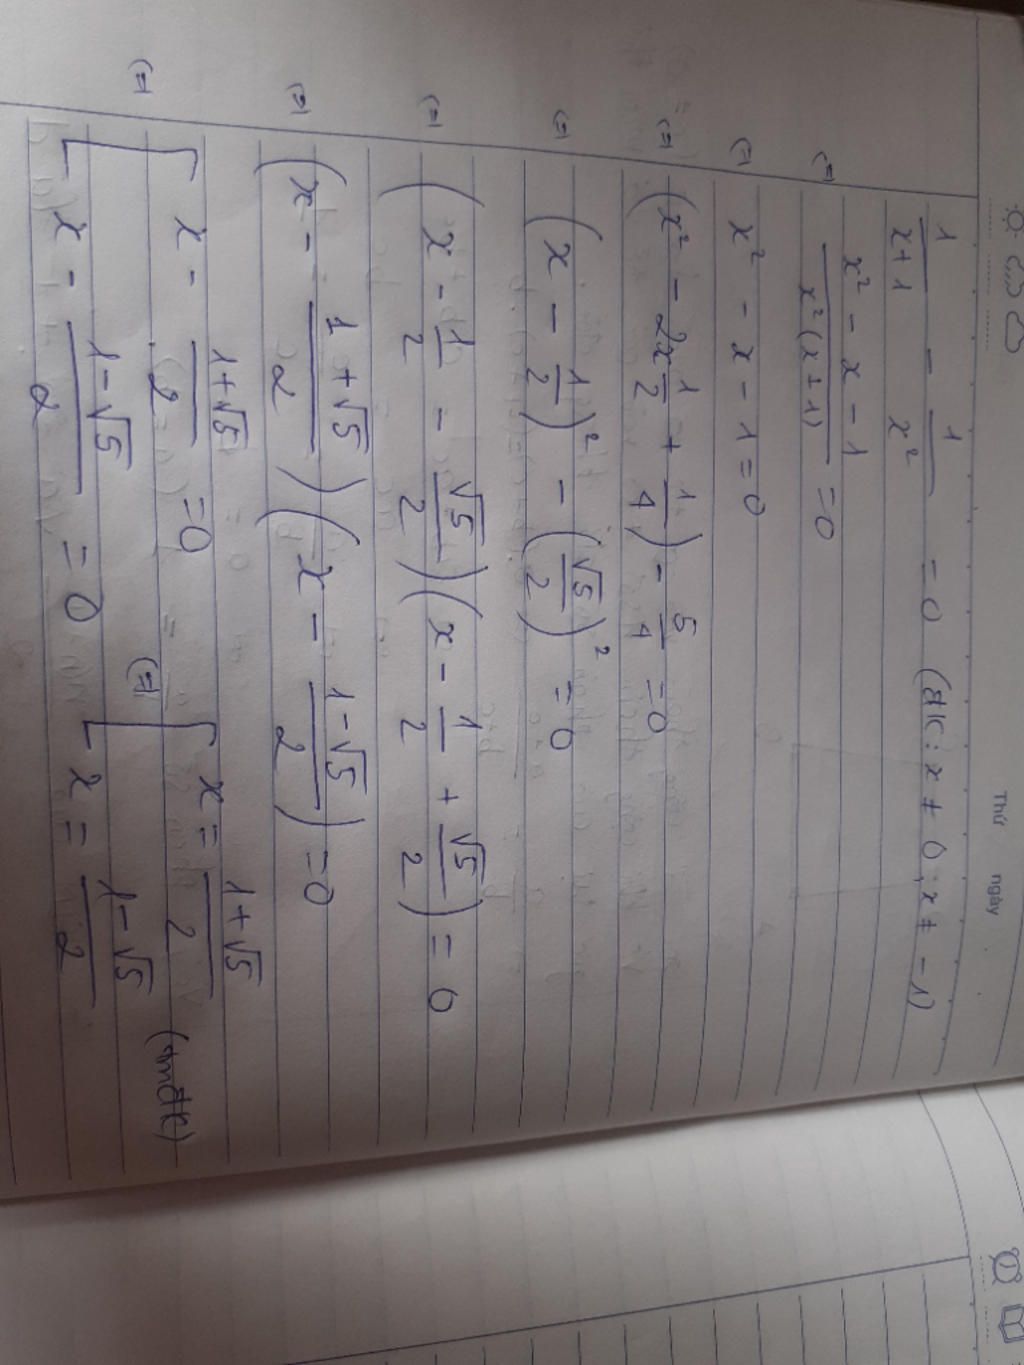 Thứ ngày
1/(x+1) - 1/x² = 0 (đk: x ≠ 0; x ≠ -1)
(=) (x² - x - 1)/(x²(x+1)) = 0
(=) x² - x - 1 = 0
(=) (x² - 2x 1/2 + 1/4) - 5/4 = 0
(=) (x - 1/2)² - (√5/2)² = 0
(=) (x - 1/2 - √5/2)(x - 1/2 + √5/2) = 0
(=) (x - (1+√5)/2)(x - (1-√5)/2) = 0
(=) [ x - (1+√5)/2 = 0 (=) [ x = (1+√5)/2 (tmđk)
x - (1-√5)/2 = 0 x = (1-√5)/2